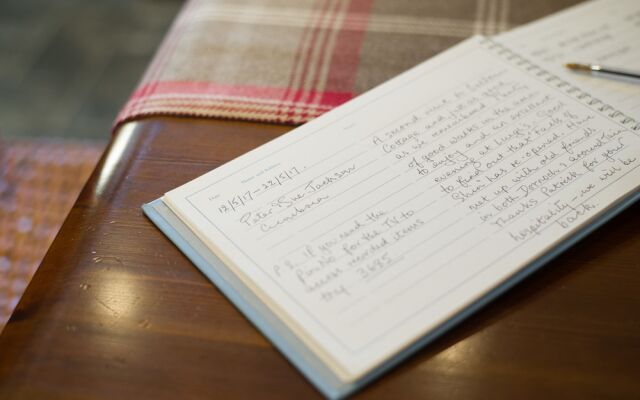 Date
12/5/17 - 22/5/17.
Peter & Sue Jackson
Cumbria
P.S. if you need the
Pin No for the TV to
access recorded items
try 3685
A second visit to
Cottage and just as good
as we remembered. Plenty
of good walks in the area
to enjoy and an excellent
evening at Luigi's. Good
to find out that Falls of
Shin has re-opened. Have
met up with old friends
in both Dornoch & around Tain
Thanks Patrick for your
hospitality - we will be
back.